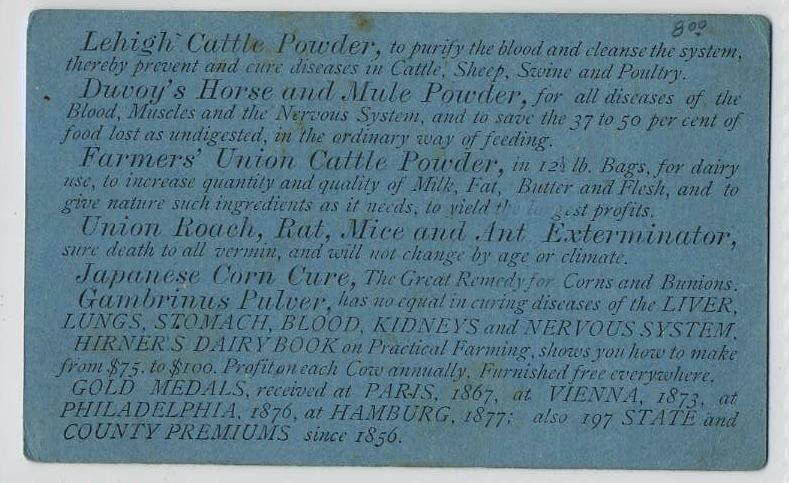 800
Lehigh Cattle Powder, to purify the blood and cleanse the system,
thereby prevent and cure diseases in Cattle, Sheep, Swine and Poultry.
Duvoy's Horse and Mule Powder, for all diseases of the
Blood, Muscles and the Nervous System, and to save the 37 to 50 per cent of
food lost as undigested, in the ordinary way of feeding.
Farmers' Union Cattle Powder, in 12½ lb. Bags, for dairy
use, to increase quantity and quality of Milk, Fat, Butter and Flesh, and to
give nature such ingredients as it needs, to yield the largest profits.
Union Roach, Rat, Mice and Ant Exterminator,
sure death to all vermin, and will not change by age or climate.
Japanese Corn Cure, The Great Remedy for Corns and Bunions.
Gambrinus Pulver, has no equal in curing diseases of the LIVER,
LUNGS, STOMACH, BLOOD, KIDNEYS and NERVOUS SYSTEM.
HIRNER'S DAIRY BOOK on Practical Farming, shows you how to make
from $75. to $100. Profit on each Cow annually. Furnished free everywhere.
GOLD MEDALS, received at PARIS, 1867, at VIENNA, 1873, at
PHILADELPHIA, 1876, at HAMBURG, 1877; also 197 STATE and
COUNTY PREMIUMS since 1856.